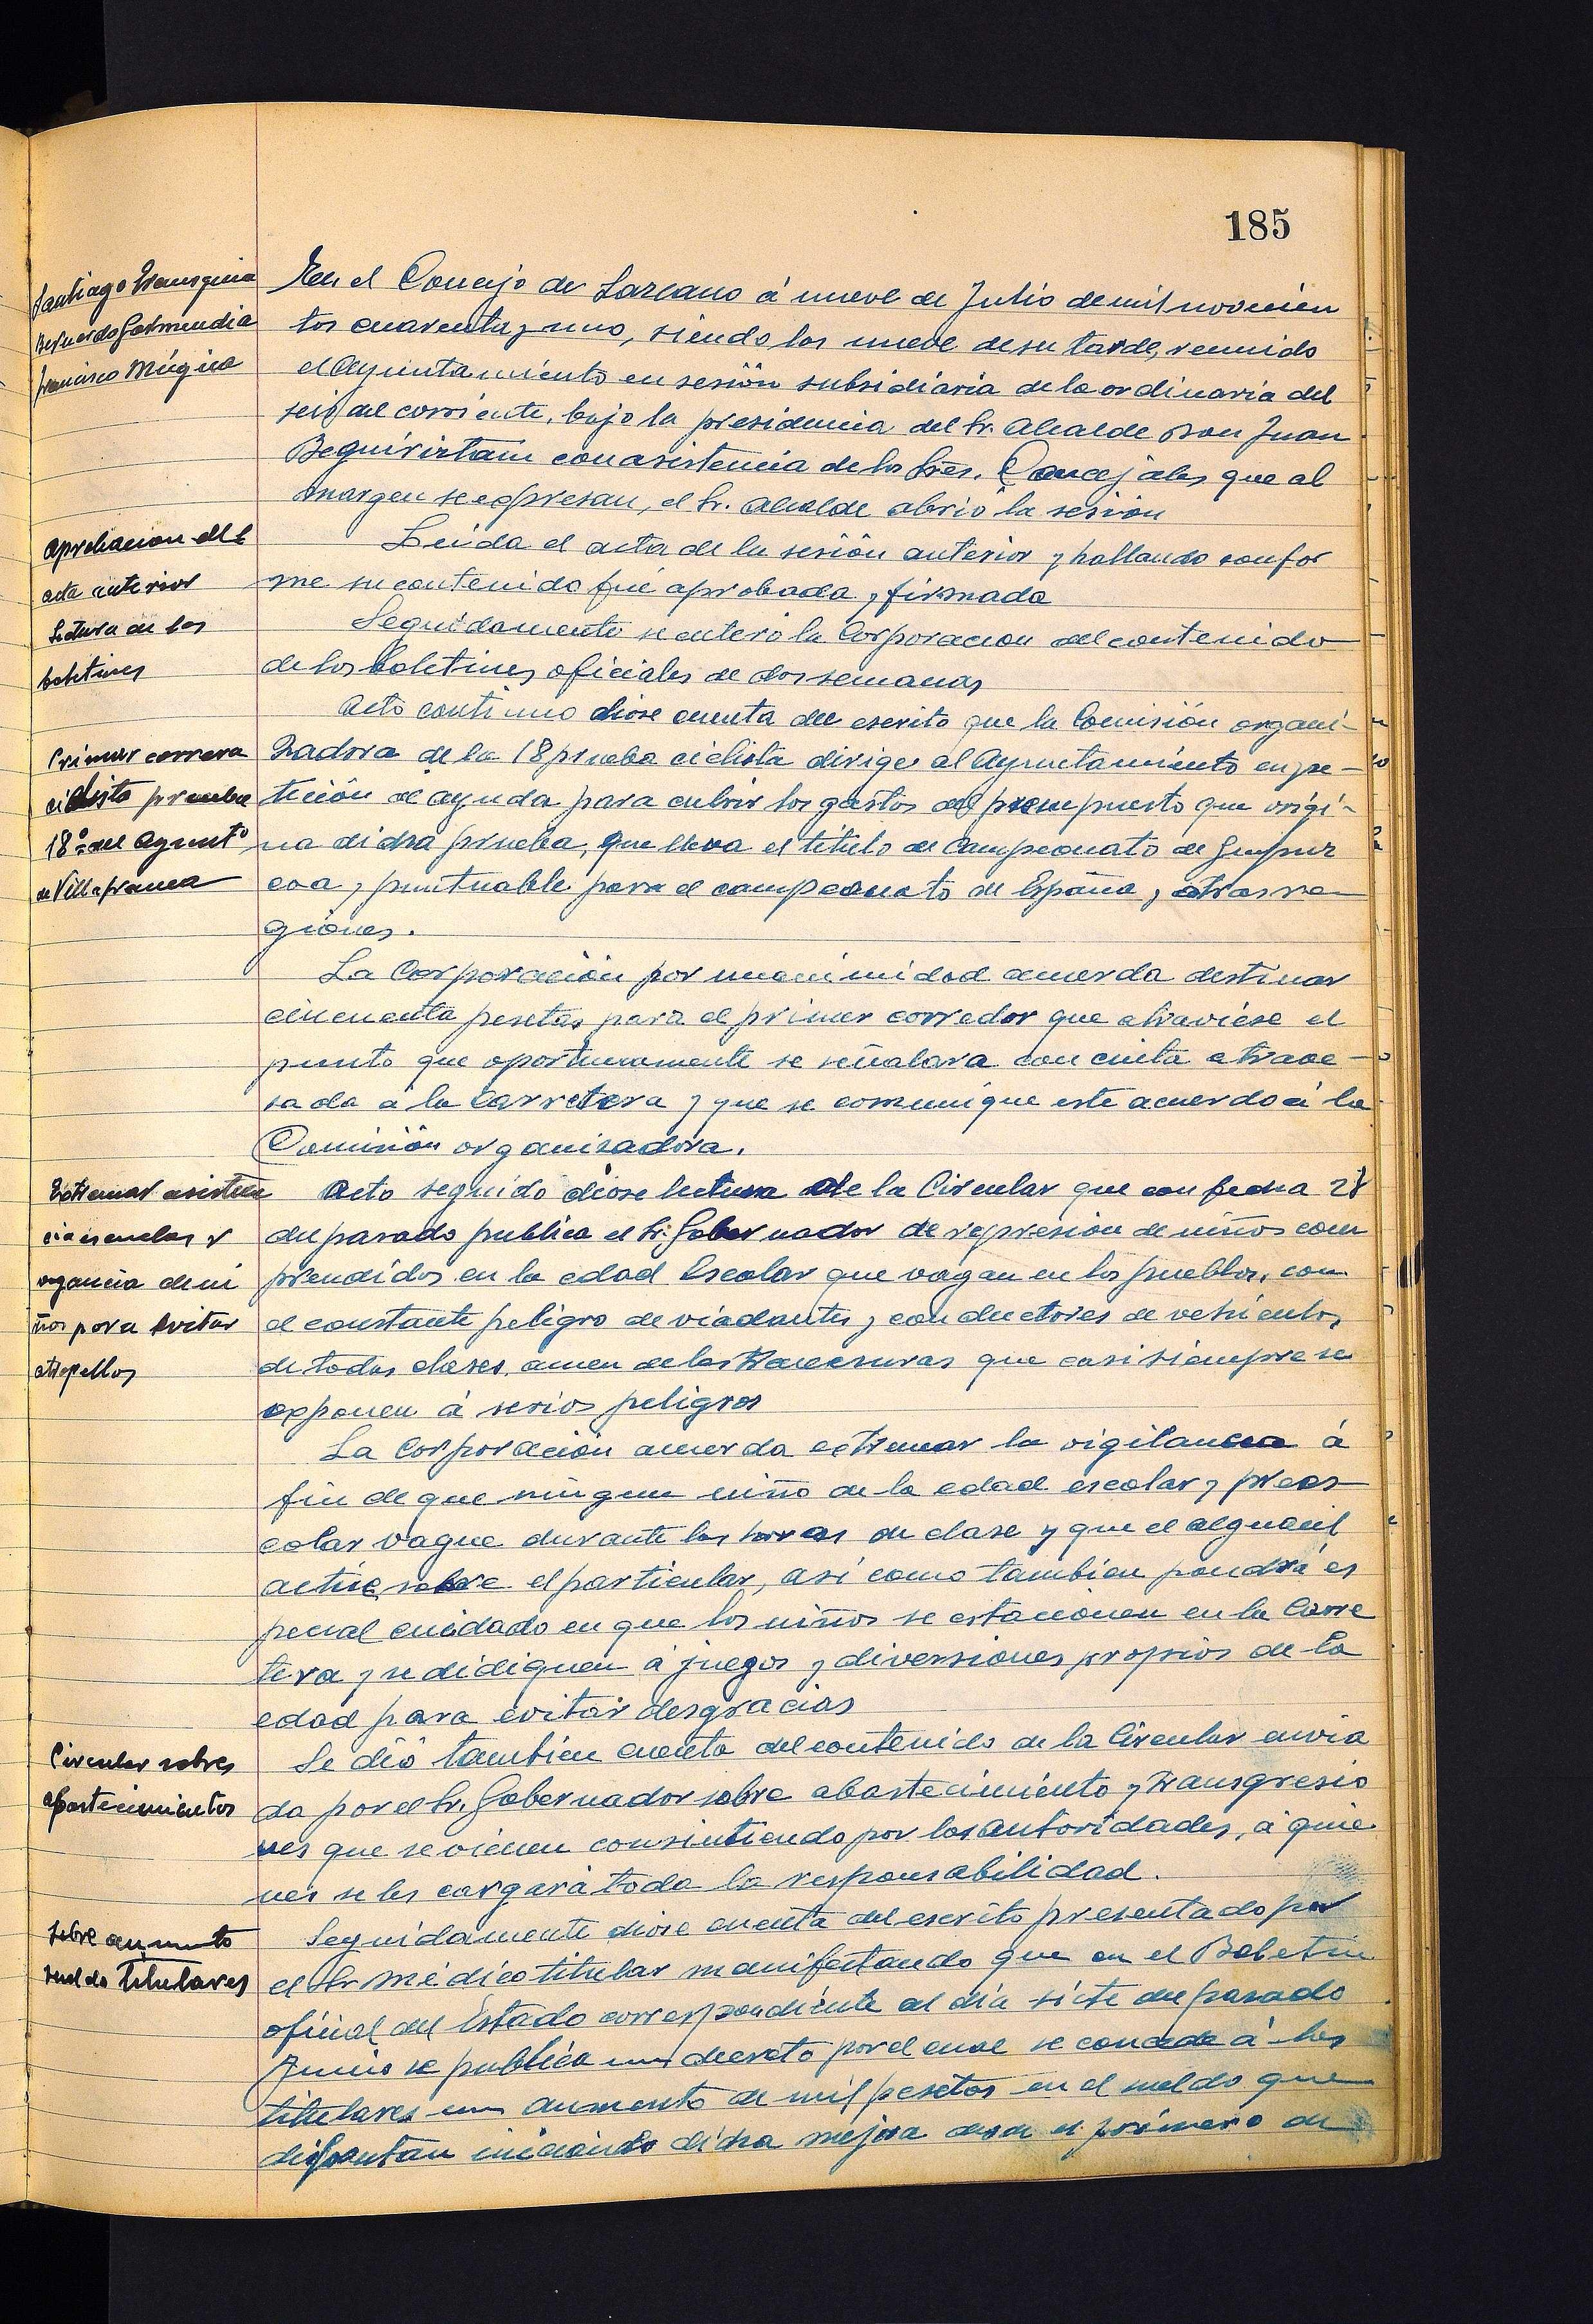 185
Santiago
Bernardo Garmendia
Francisco Múgica
En el Concejo de Lazcano á nueve de Julio de mil novecien
tos cuarenta y uno, siendo las nueve de su tarde, reunido
el Ayuntamiento en sesión subsidiaria de la ordinaria del
seis del corriente, bajo la presidencia del Sr. Alcalde Don Juan
Beguiristain con asistencia de los Sres. Concejales que al
margen se expresan, el Sr. Alcalde abrió la sesión
Aprobacion del
acta anterior
Leida el acta de la sesión anterior y hallando confor
me su contenido fué aprobada y firmada
Lectura de los
boletines
Seguidamente se enteró la Corporacion del contenido
de los boletines oficiales de dos semanas
Acto continuo diose cuenta del escrito que la Comisión organi-
Primer carrera
ciclista prueba
18ª del Ayuntº
de Villafranca
zadora de la 18 prueba ciclista dirige al Ayuntamiento en pe-
tición de ayuda para cubrir los gastos del presupuesto que origi-
na dicha prueba, que lleva el título de Campeonato de Guipuz
coa y puntuable para el campeonato de España y otras re
giones.
La Corporación por unanimidad acuerda destinar
cincuenta pesetas para el primer corredor que atraviese el
punto que oportunamente se señalara con cinta atrave-
sada á la Carretera y que se comunique este acuerdo á la
Comisión organizadora.
Extremar asisten
cia escuelas y
vagancia de ni
ños para evitar
atropellos
Acto seguido diose lectura de la Circular que con fecha 28
del pasado publica el Sr. Gobernador de represion de niños com
prendidos en la edad Escolar que vagan en los pueblos, con
el constante peligro de viadantes y conductores de vehiculos
de todas clases, amen de las travesuras que casi siempre se
exponen á serios peligros
La Corporación acuerda extremar la vigilancia á
fin de que ningun niño de la edad escolar y prees
colar vague durante las horas de clase y que el alguacil
actúe sobre el particular, así como tambien pondrá es
pecial cuidado en que los niños se estacionen en la Carre
tera y se didiquen á juegos y diversiones propios de la
edad para evitar desgracias
Circular sobre
abastecimientos
Se dió tambien cuenta del contenido de la Circular envia
da por el Sr. Gobernador sobre abastecimiento y transgresio
nes que se vienen consintiendo por las autoridades, á quie
nes se les cargará toda la responsabilidad.
Sobre aumento
sueldo titulares
Seguidamente diose cuenta del escrito presentado por
el Sr Médico titular manifestando que en el Boletin
oficial del Estado correspondiente al día siete del pasado
Junio se publica un decreto por el cual se concede á los
titulares un aumento de mil pesetas en el sueldo que
disfrutan iniciando dicha mejora desde el primero de